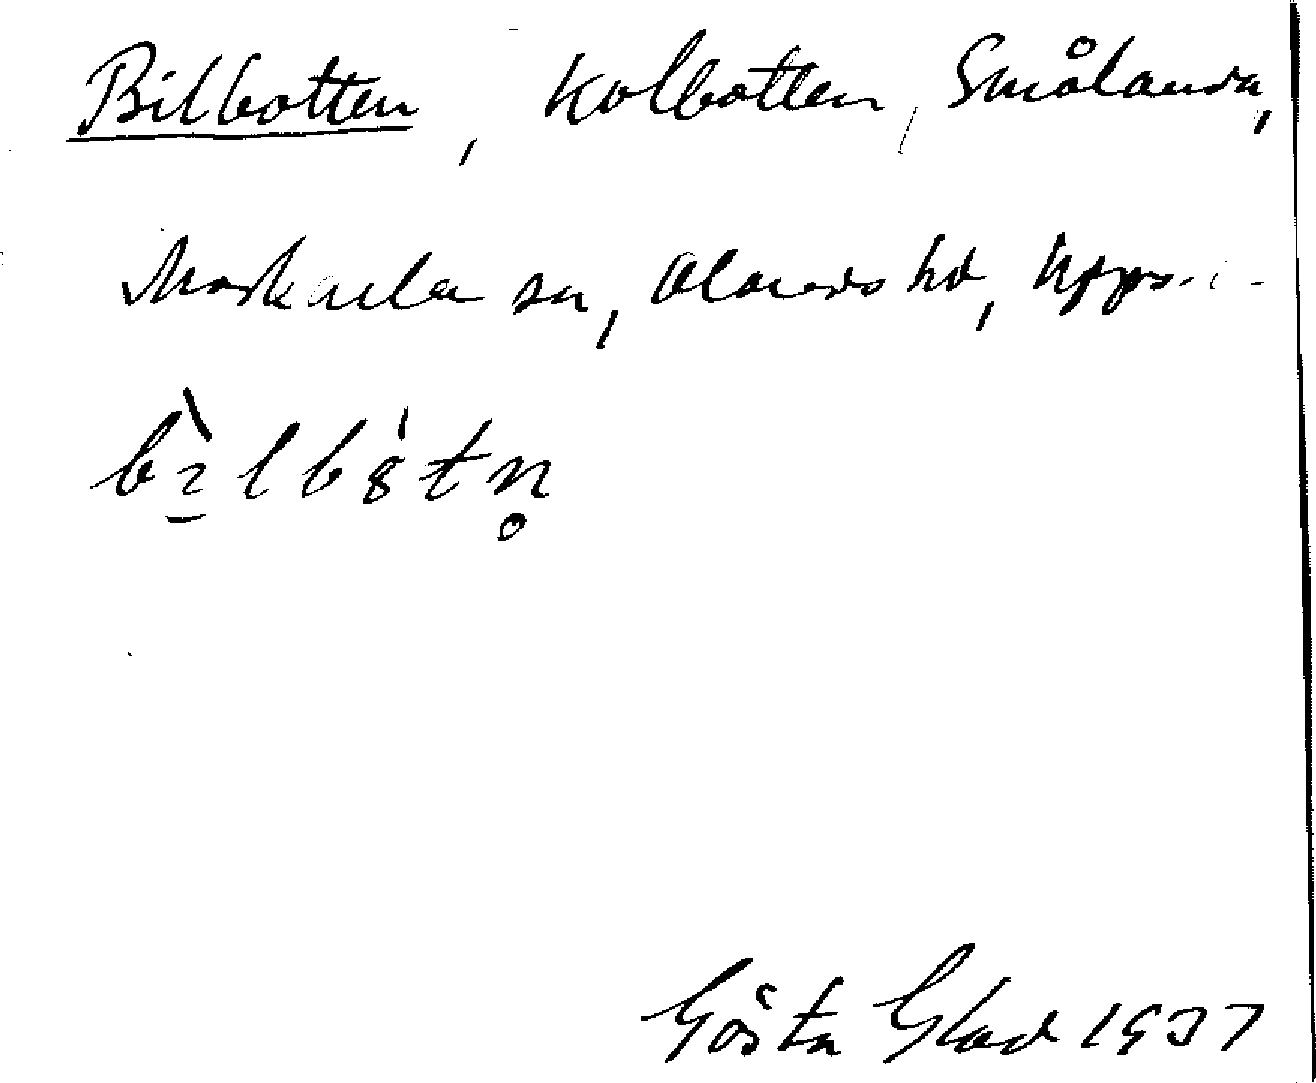 Bilbotten, Kolbotten, Smålanda,
Morkarla sn, Olands hd, Upps.
bìlbȣ́tn̥
Gösta Glad 1937